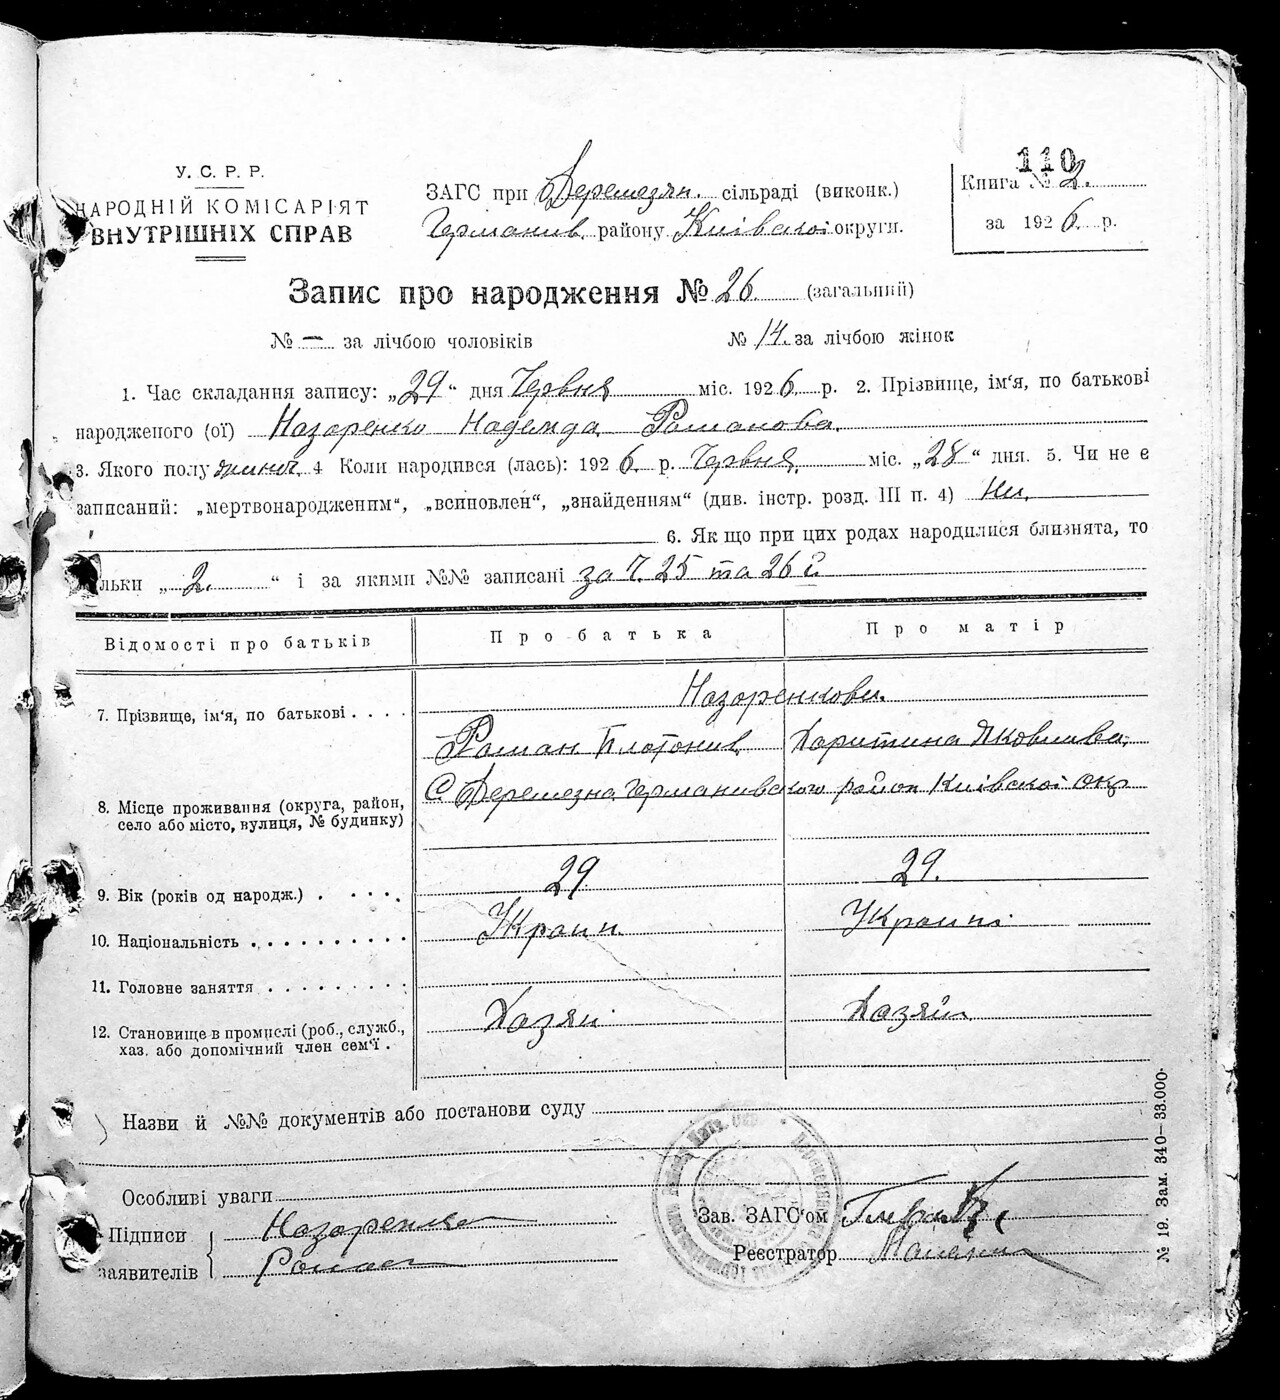 110
У. С. Р. Р.
НАРОДНІЙ КОМІСАРІЯТ
ВНУТРІШНІХ СПРАВ
ЗАГС при Деремезян. сільраді (виконк.)
Германів. району Київської округи.
Книга № 2.
за 1926 р.
Запис про народження № 26 (загальний)
№ — за лічбою чоловіків № 14. за лічбою жінок
1. Час складання запису: „29“ дня Червня міс. 1926 р. 2. Прізвище, ім‘я, по батькові
народженого (ої) Назаренко Надежда Романова.
3. Якого полу жіноч. 4 Коли народився (лась): 1926 р. Червня, міс. „28“ дня. 5. Чи не є
записаний: „мертвонародженим“, „всиповлен“, „знайденням“ (див. інстр. розд. III п. 4) Ни.
6. Як що при цих родах народилися близнята, то
льки „2.“ і за якими №№ записані за ч. 25 та 26
Відомості про батьків Про батька Про матір
7. Прізвище, ім‘я, по батькові . . . . Назаренкови.
Роман Платонив. Харитина Яковлива.
8. Місце проживання (округа, район, село або місто, вулиця, № будинку) С Деремезна Германивского район Київской окр
9. Вік (років од народж.) . . . . . 29 29.
10. Національність . . . . . . . . . . Украин. Украині
11. Головне заняття . . . . . . . . .
12. Становище в промислі (роб., служб., хаз. або допомічний член сем‘ї . Хазяї Хазяй
Назви й №№ документів або постанови суду
Особливі уваги
Підписи Назаренко
заявителів Роман
Зав. ЗАГС‘ом
Реєстратор
№ 19. Зам. 340—33.000.